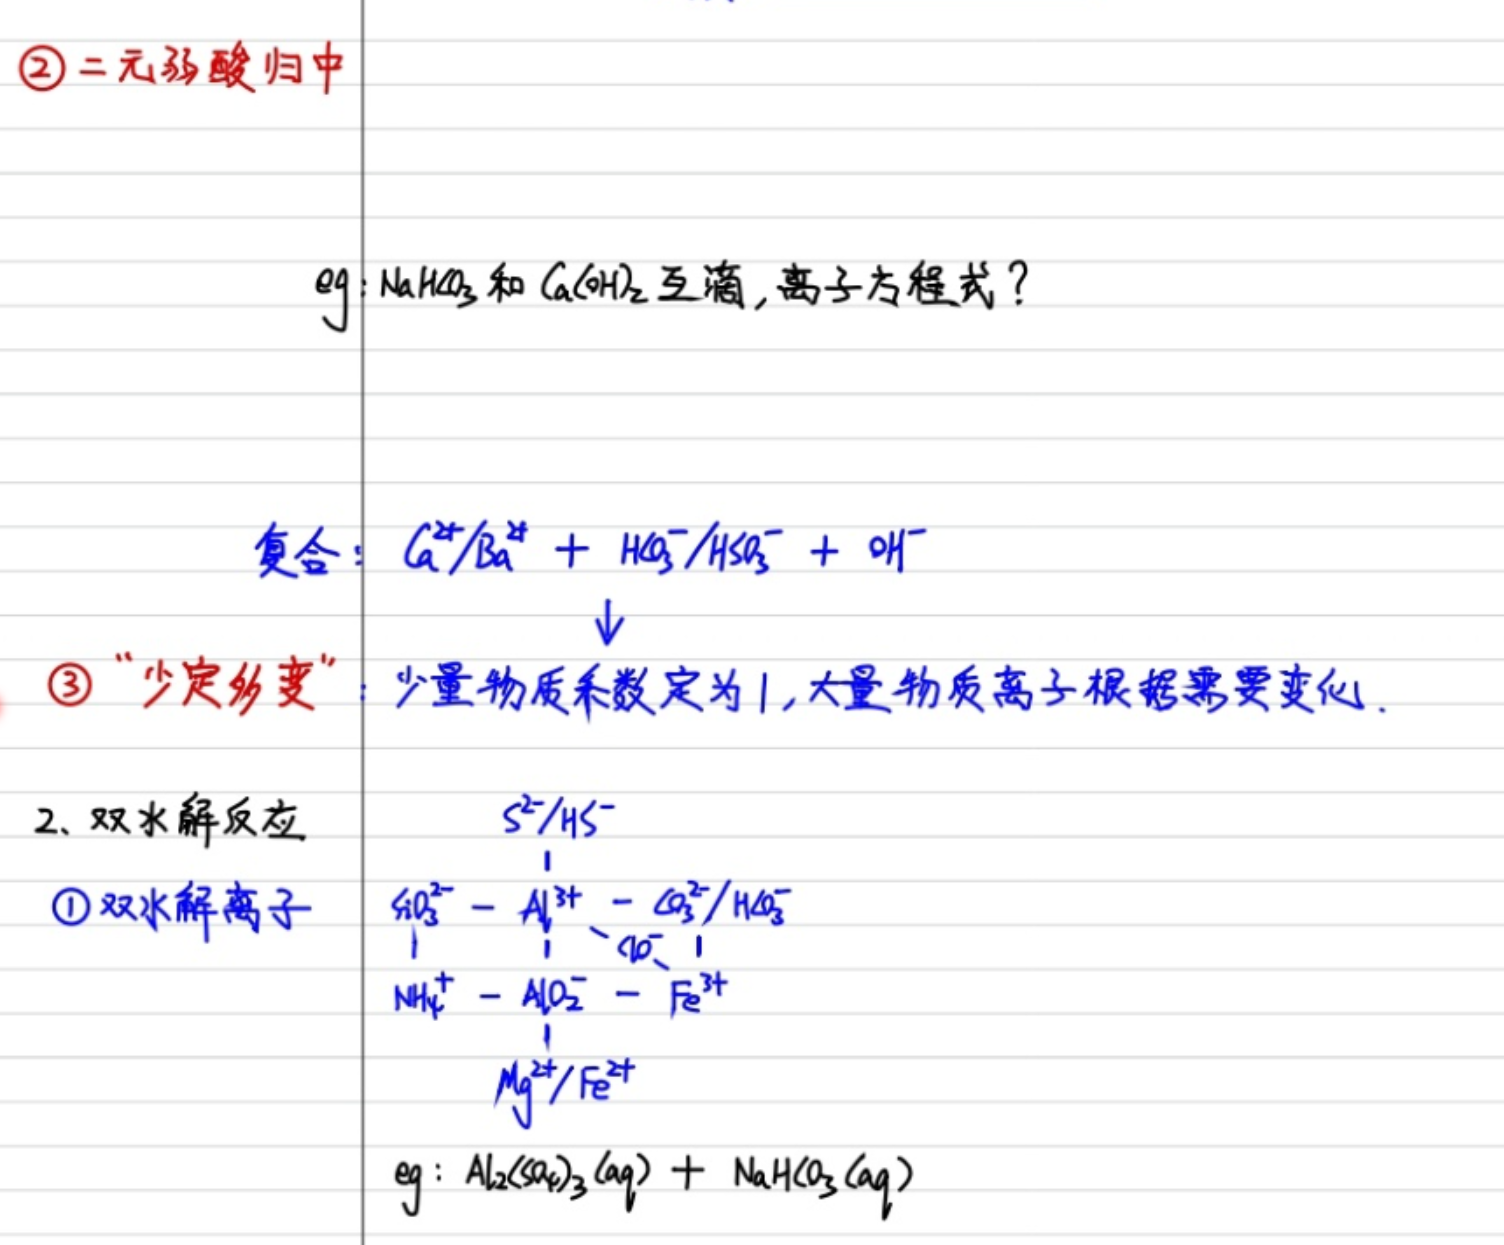 ② 二元弱酸归中
eg: NaHCO₃ 和 Ca(OH)₂ 互滴, 离子方程式?
复合: Ca²⁺/Ba²⁺ + HCO₃⁻/HSO₃⁻ + OH⁻
↓
③ “少定多变”: 少量物质系数定为1, 大量物质离子根据需要变化.
2、双水解反应
S²⁻/HS⁻
① 双水解离子 SiO₃²⁻ — Al³⁺ — CO₃²⁻/HCO₃⁻
ClO⁻
NH₄⁺ — AlO₂⁻ — Fe³⁺
Mg²⁺/Fe²⁺
eg: Al₂(SO₄)₃(aq) + NaHCO₃(aq)